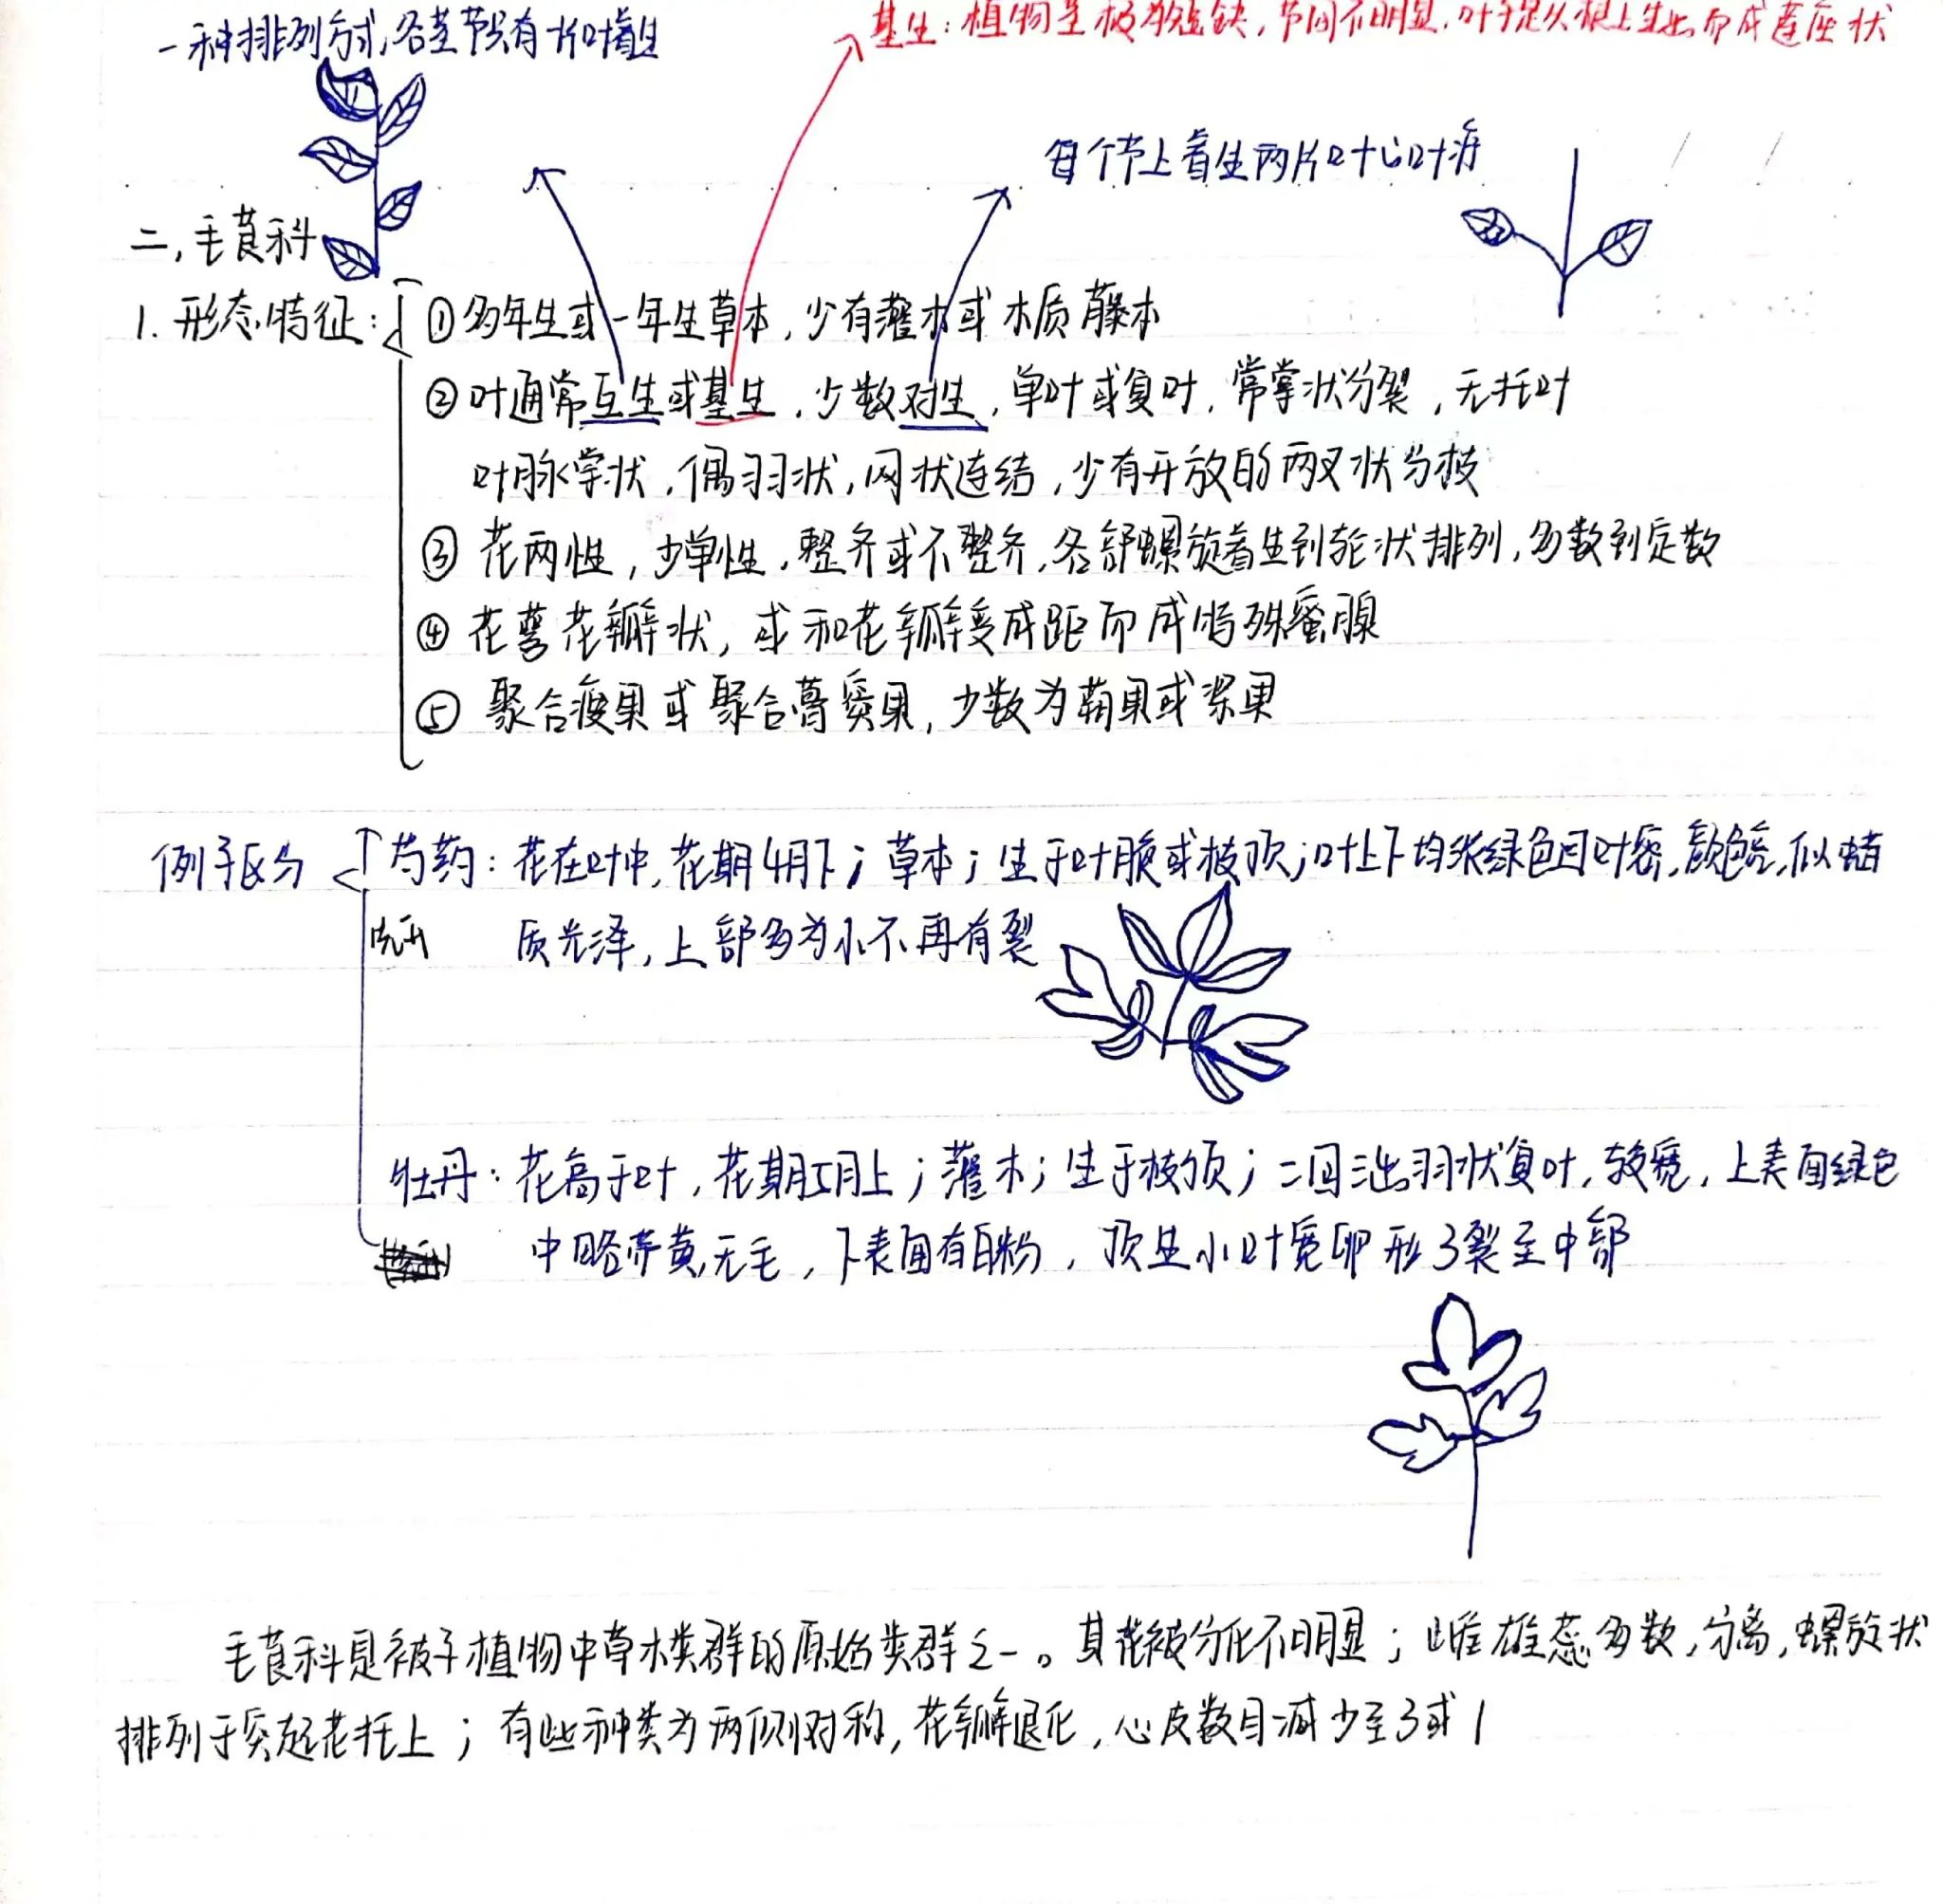 一种排列方式,各茎节只有一个叶着生
基生：植物茎极为短缺,节间不明显.叶子是从根上生出而成莲座状
每个节上着生两片叶
二,毛茛科
1. 形态特征：①多年生或一年生草本,少有灌木或木质藤本
②叶通常互生或基生,少数对生,单叶或复叶,常掌状分裂,无托叶
叶脉掌状,偶羽状,网状连结,少有开放的两叉状分枝
③ 花两性,少单性,整齐或不整齐,各部螺旋着生到轮状排列,多数到定数
④ 花萼花瓣状,或和花瓣变成距而成特殊蜜腺
⑤ 聚合瘦果或聚合蓇葖果,少数为蒴果或浆果
例子区分 芍药：花在叶中,花期4月下；草本；生于叶腋或枝顶；叶上下均浓绿色且叶密,颜色亮,似蜡
先开 质光泽,上部多为小不再有裂
牡丹：花高于叶,花期5月上；灌木；生于枝顶；二回三出羽状复叶,较宽,上表面绿色
中略带黄无毛,下表面有白粉,顶生小叶宽卵形3裂至中部
毛茛科是被子植物中草本类群的原始类群之一。其花被分化不明显；雌雄蕊多数,分离,螺旋状
排列于突起花托上；有些种类为两侧对称,花瓣退化,心皮数目减少至3或1